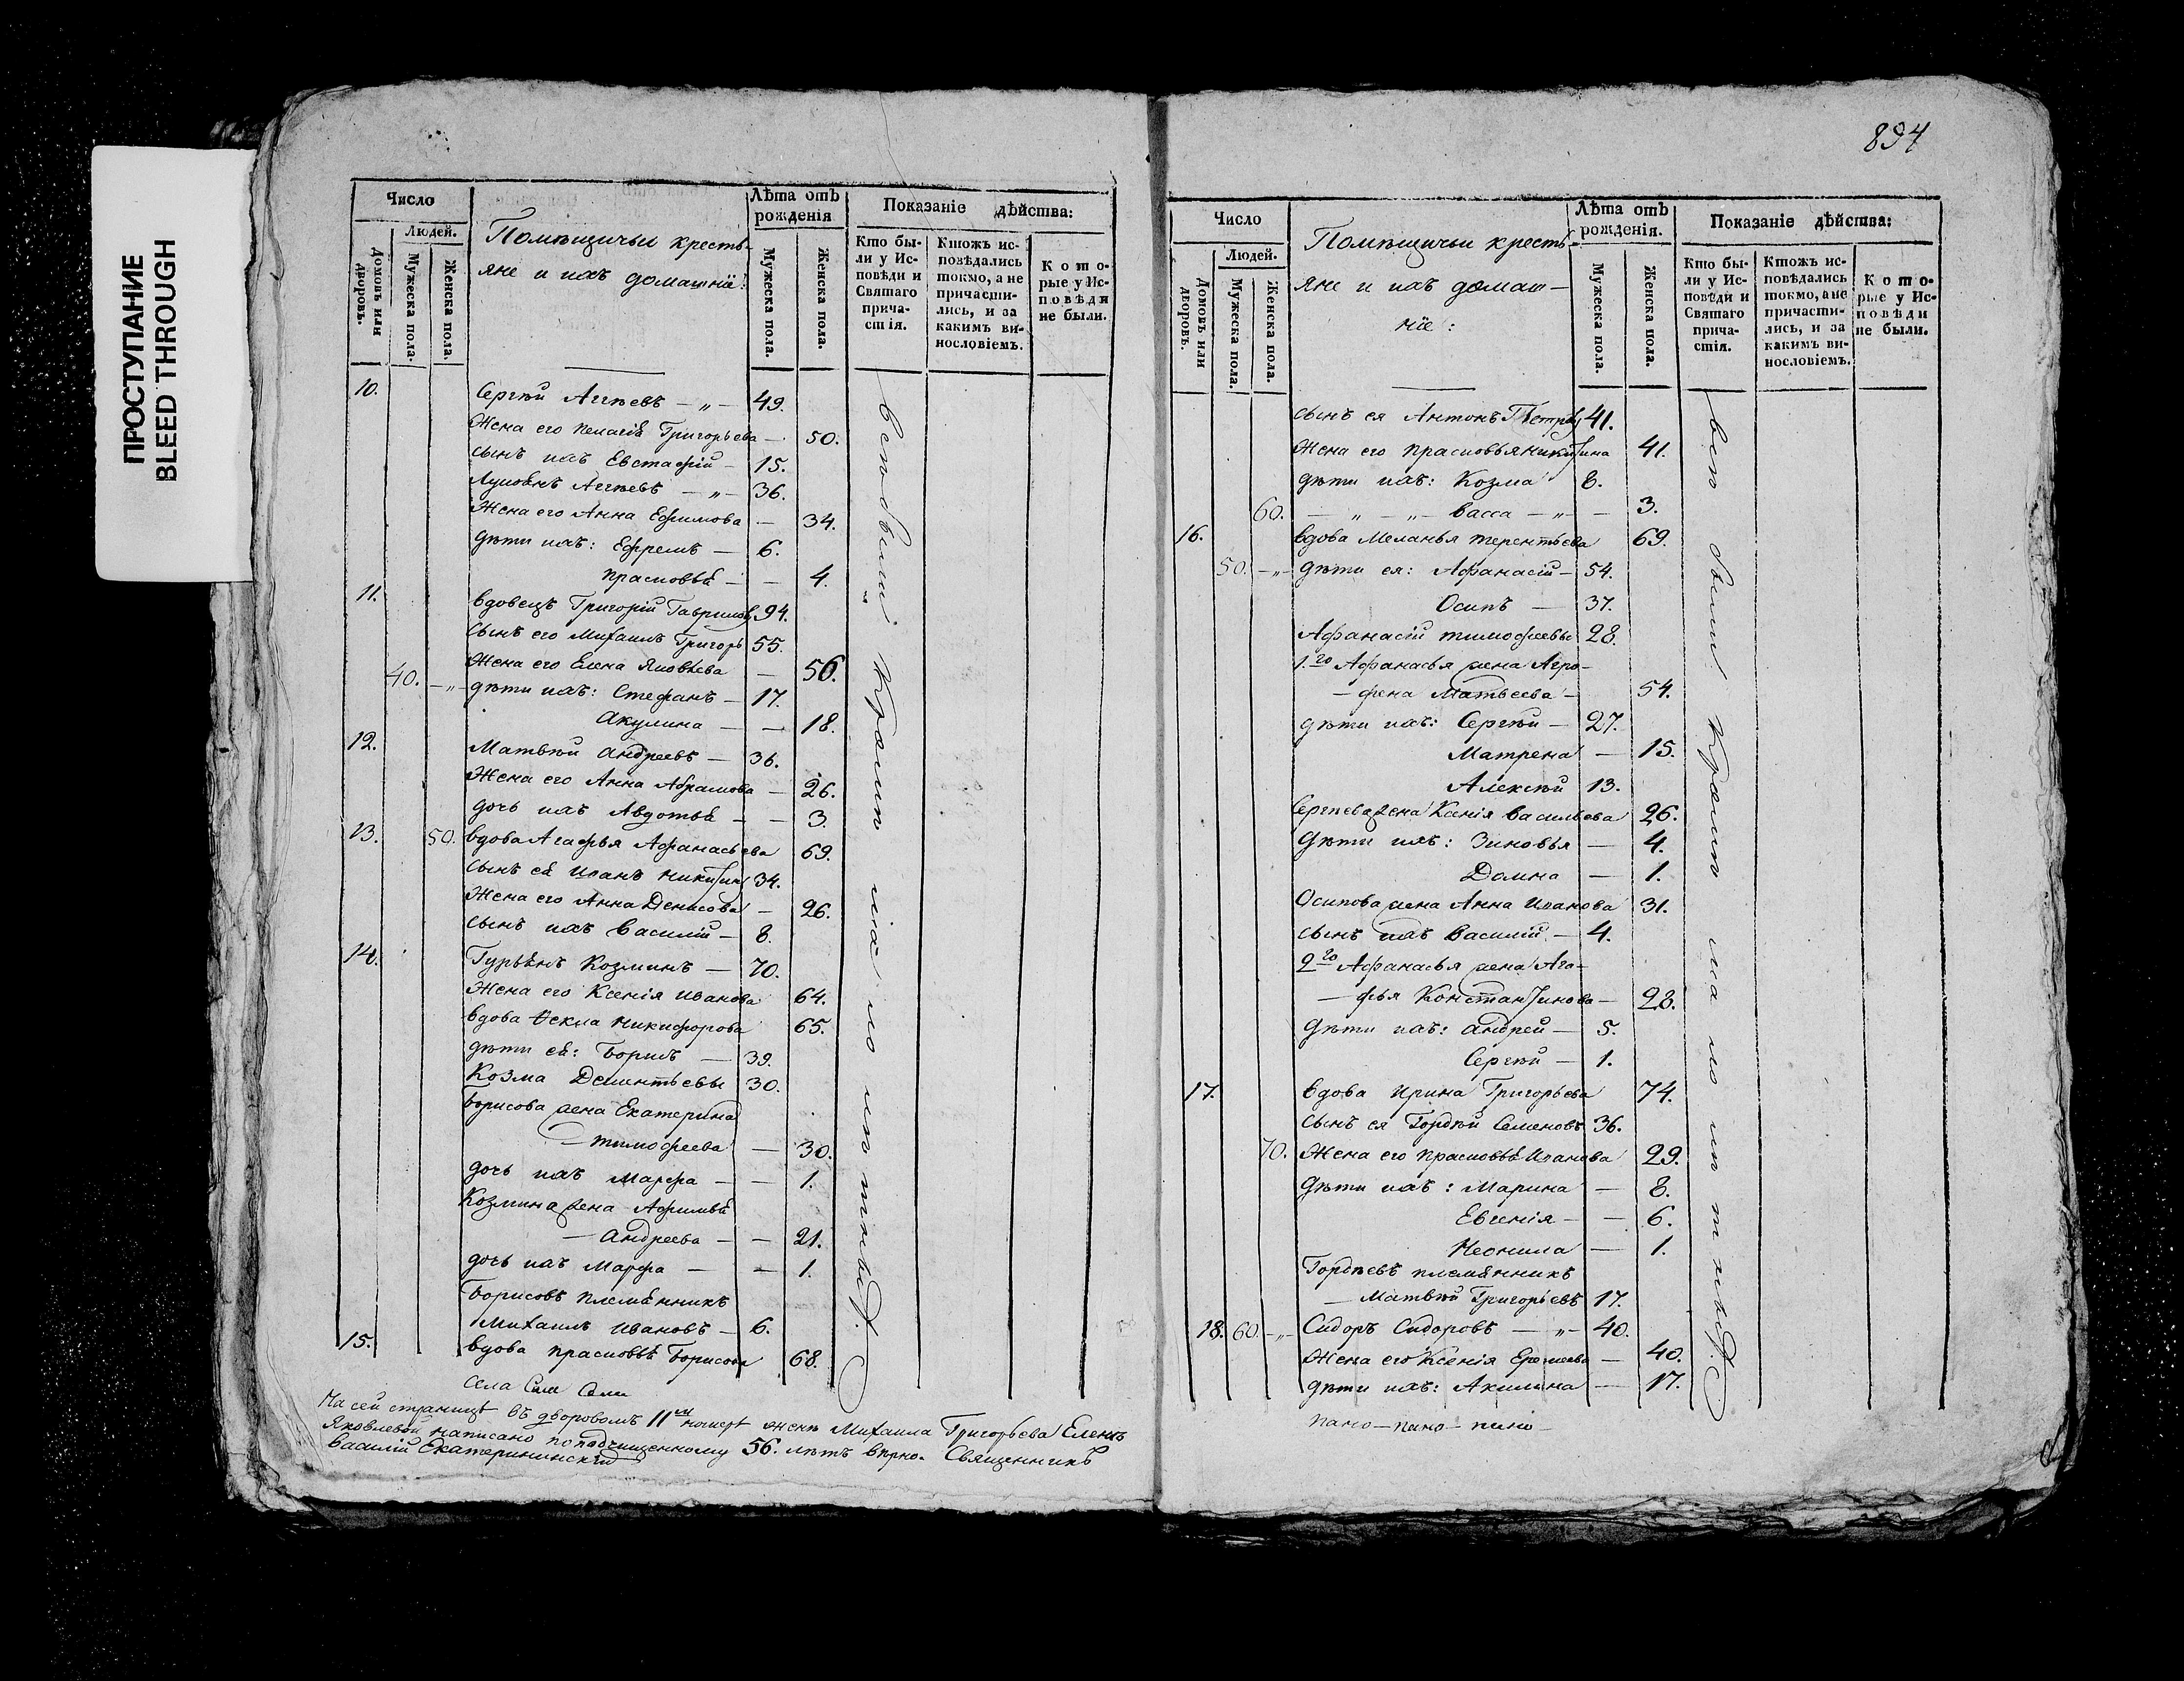 ПРОСТУПАНИЕ
BLEED THROUGH
Число
Людей.
Домовъ или дворовъ.
Мужеска пола.
Женска пола.
Помѣщичьи кресть-
яне и ихъ домашнiе:
Лѣта отъ рожденія
Мужеска пола.
Женска пола.
Показаніе дѣйства:
Кто бы-
ли у Ис-
повѣди и
Святаго
прича-
стія.
Ктожъ ис-
повѣдались
токмо, а не
причасти-
лись, и за
какимъ ви-
нословіемъ.
Кото-
рые у Ис-
повѣди
не были.
10. Сергѣй Агѣевъ — „ — 49.
Жена его Пелагія Григорьева — 50.
сынъ ихъ Евстафій — 15.
Лукьянъ Агѣевъ — „ — 36.
Жена его Анна Ефимова — 34.
дѣти ихъ: Ефремъ — 6.
Прасковья — — 4.
11. вдовецъ Григорій Гавриловъ 94.
сынъ его Михаилъ Григорь 55.
Жена его Елена Яковлева — 56.
40. — „ — дѣти ихъ: Стефанъ — 17.
Акулина — — 18.
12. Матвѣй Андреевъ — 36.
Жена его Анна Абрамова — 26.
дочь ихъ Авдотья — — 3.
13. 50. вдова Агафья Афанасьева 69.
сынъ ея Иванъ Никитин 34.
Жена его Анна Денисова — 26.
сынъ ихъ Василій — 8.
14. Гурьянъ Козминъ — 70.
Жена его Ксенія Иванова 64.
вдова Ѳекла Никифорова 65.
дѣти ея: Борисъ — 39.
Козма Дементьевы 30.
Борисова жена Екатерина
— Тимофеева — 30.
дочь ихъ Марфа — — 1.
Козмина жена Афимья
— Андреева — — 21.
дочь ихъ Марфа — — 1.
Борисовъ племянникъ
Михаилъ Ивановъ — 6.
15. вдова Прасковья Борисова 68.
всѣ были
села Сели Сели
На сей страницѣ въ дворовомъ 11м номерѣ женѣ Михаила Григорьева Еленѣ
Яковлевой написано по подчищенному 56. лѣтъ вѣрно. Священникъ
Василій Екатерининскій
894
Число
Людей.
Домовъ или дворовъ.
Мужеска пола.
Женска пола.
Помѣщичьи кресть-
яне и ихъ домаш—
нiе:
Лѣта отъ рожденія.
Мужеска пола.
Женска пола.
Показаніе дѣйства:
Кто бы-
ли у Ис-
повѣди и
Святаго
прича-
стія.
Ктожъ ис-
повѣдались
токмо, а не
причасти-
лись, и за
какимъ ви-
нословіемъ.
Кото-
рые у Ис-
повѣди
не были.
сынъ ея Антонъ Петровъ 41.
Жена его Прасковья Никитина 41.
дѣти ихъ: Козма 8.
60. — „ — „ — Васса — „ — — 3.
16. вдова Меланья Терентьева 69.
50. — „ — дѣти ея: Афанасій — 54.
Осипъ — 37.
Афанасій Тимофеевы 28.
1.го Афанасья жена Агро-
— фена Матвеева — 54.
дѣти ихъ: Сергѣй — 27.
Матрена — 15.
Алексѣй 13.
Сергѣева жена Ксенія Васильева 26.
дѣти ихъ: Зиновья — 4.
Домна — 1.
Осипова жена Анна Иванова 31.
сынъ ихъ Василій — 4.
2го Афанасья жена Ага-
— фья Константинова — 28.
дѣти ихъ: Андрей — 5.
Сергѣй — 1.
17. вдова Ирина Григорьева 74.
сынъ ея Гордѣй Семеновъ 36.
70. Жена его Прасковья Иванова 29.
дѣти ихъ: Марина — 8.
Евгенія — — 6.
Неонила — 1.
Гордѣевъ племянникъ
— Матвѣй Григорьевъ 17.
18. 60. — „ — Сидоръ Сидоровъ — „ — 40.
Жена его Ксенія Еремеева — 40.
дѣти ихъ: Акилина — 17.
всѣ были